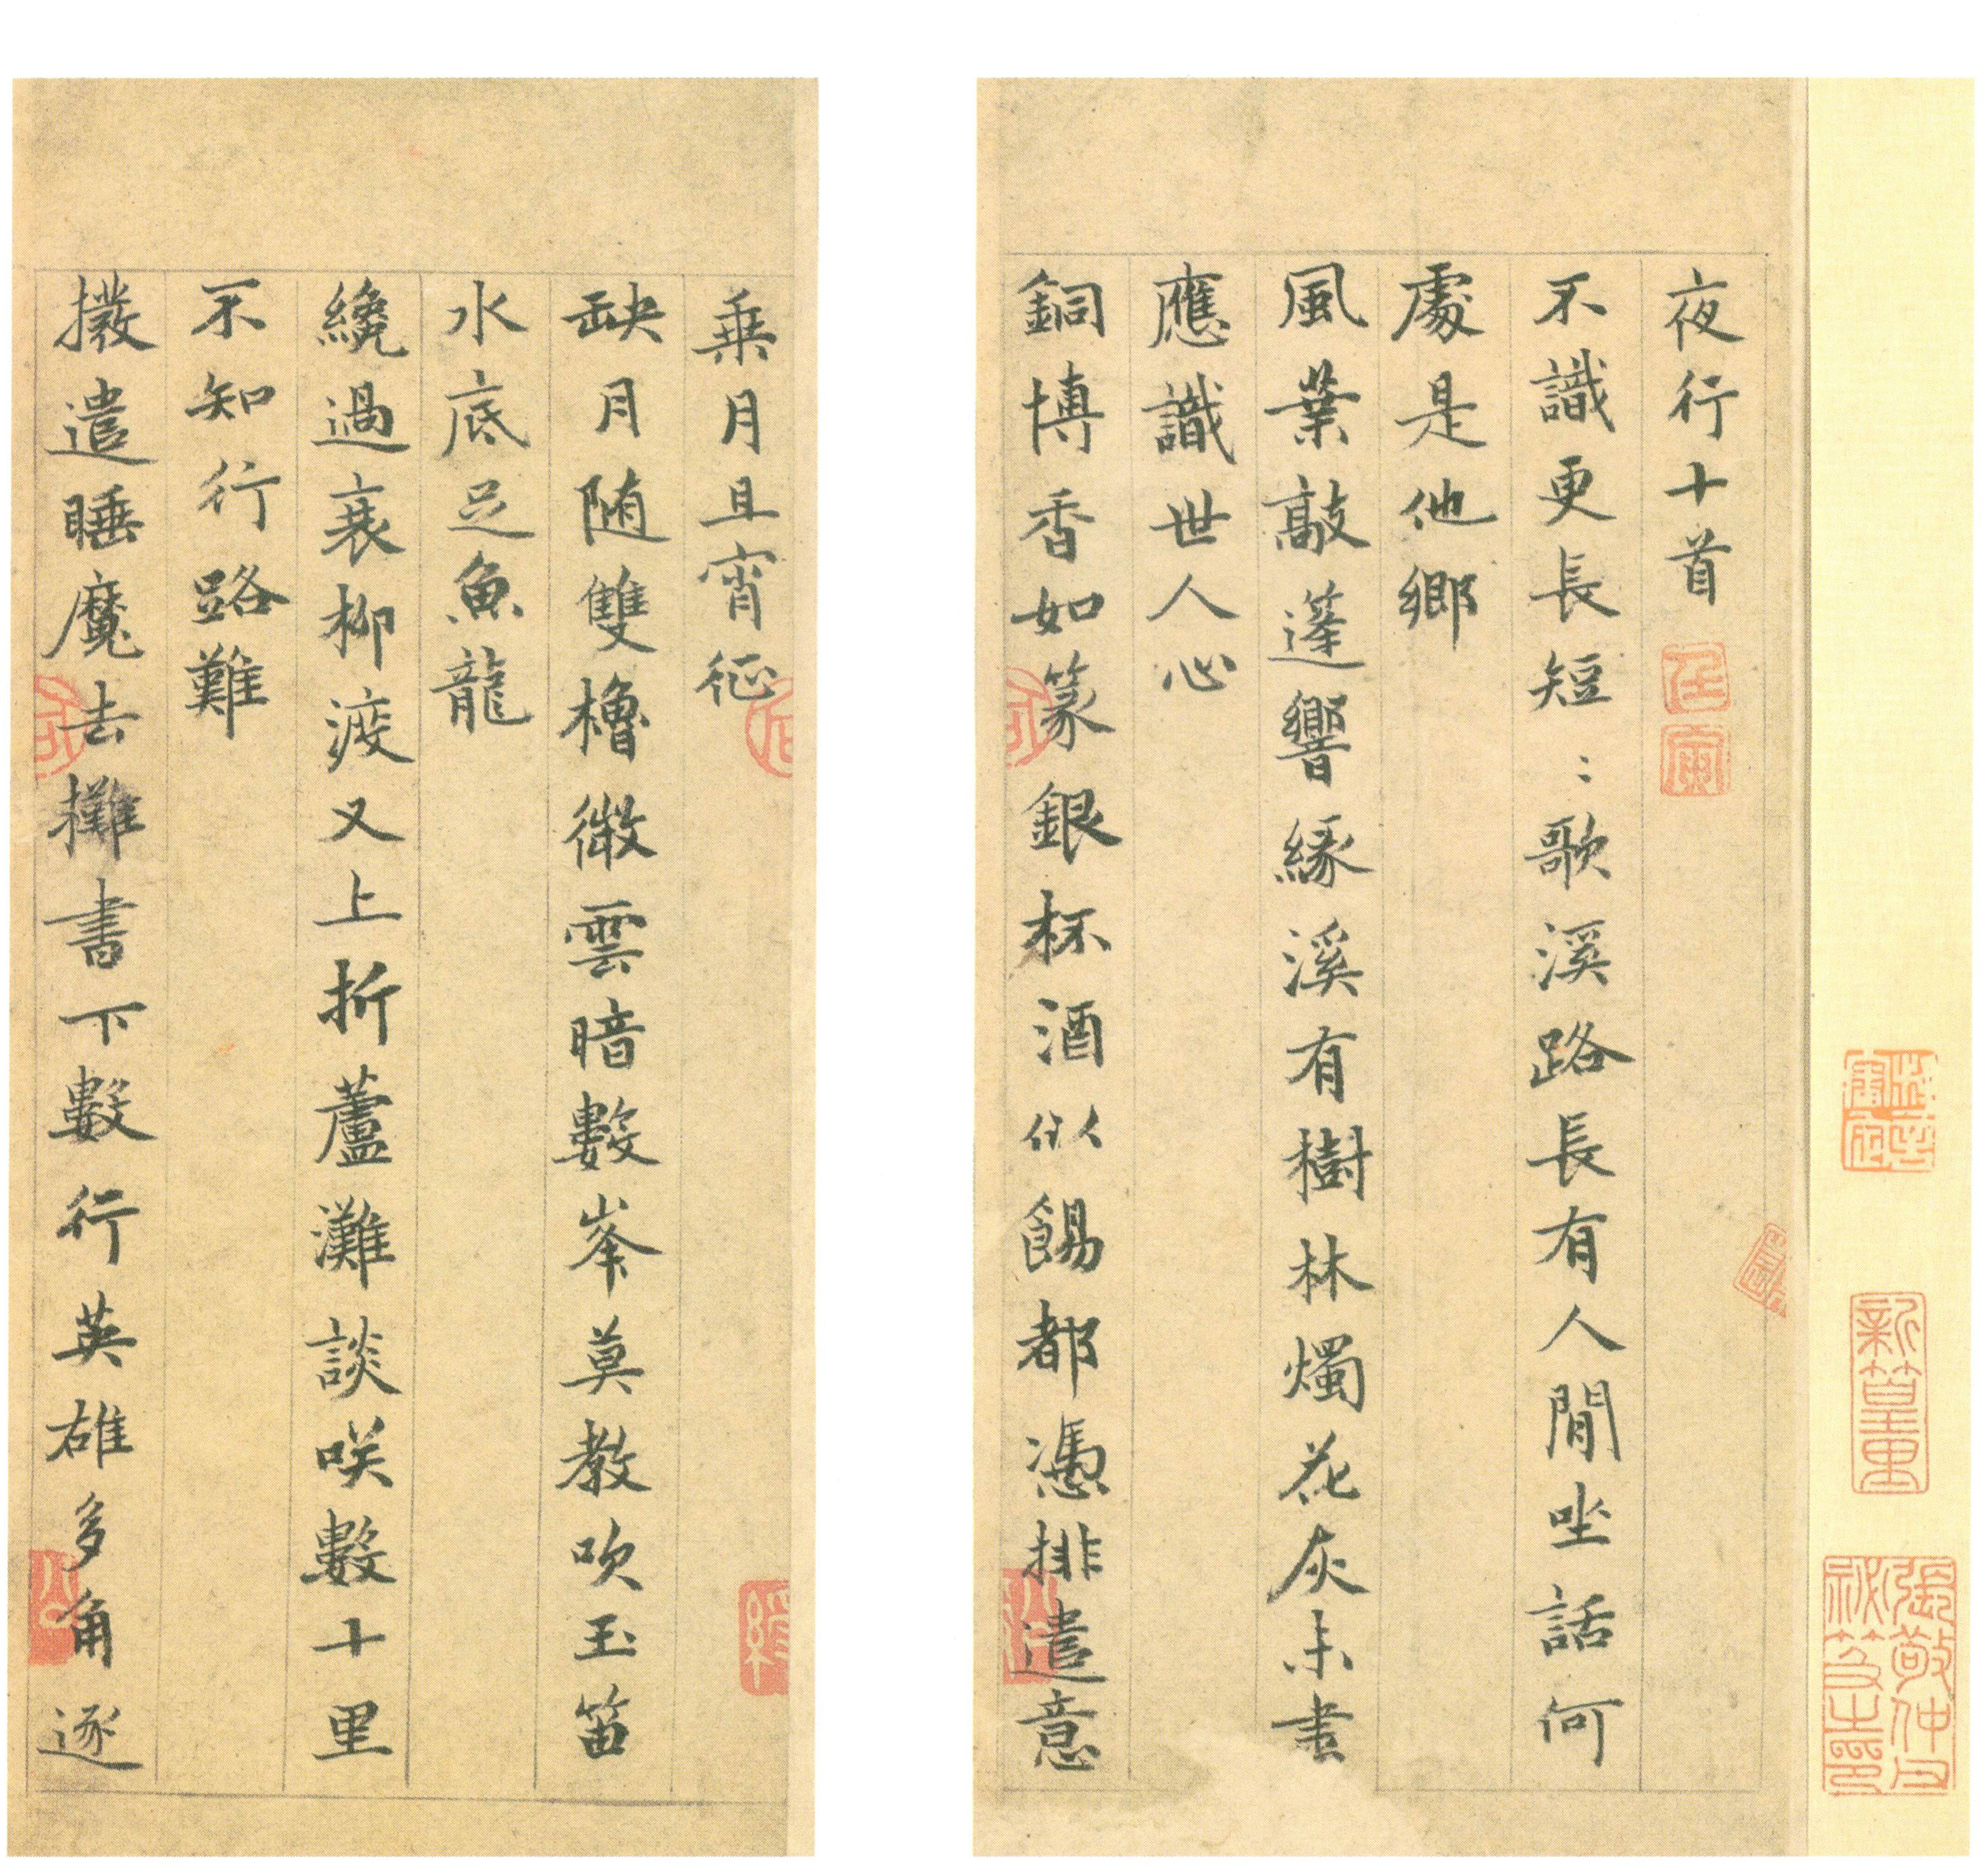 夜行十首
不識更長短〻歌溪路長有人閒坐話何
處是他鄉
風葉敲篷響緣溪有樹林燭花灰未盡
應識世人心
銅博香如篆銀杯酒似餳都憑排遣意
乗月且宵征
缺月随雙櫓微雲暗數峯莫教吹玉笛
水底起魚龍
纔過衰柳渡又上折蘆灘談咲數十里
不知行路難
撥遣睡魔去攤書下數行英雄多角逐
新篁里
張敬仲